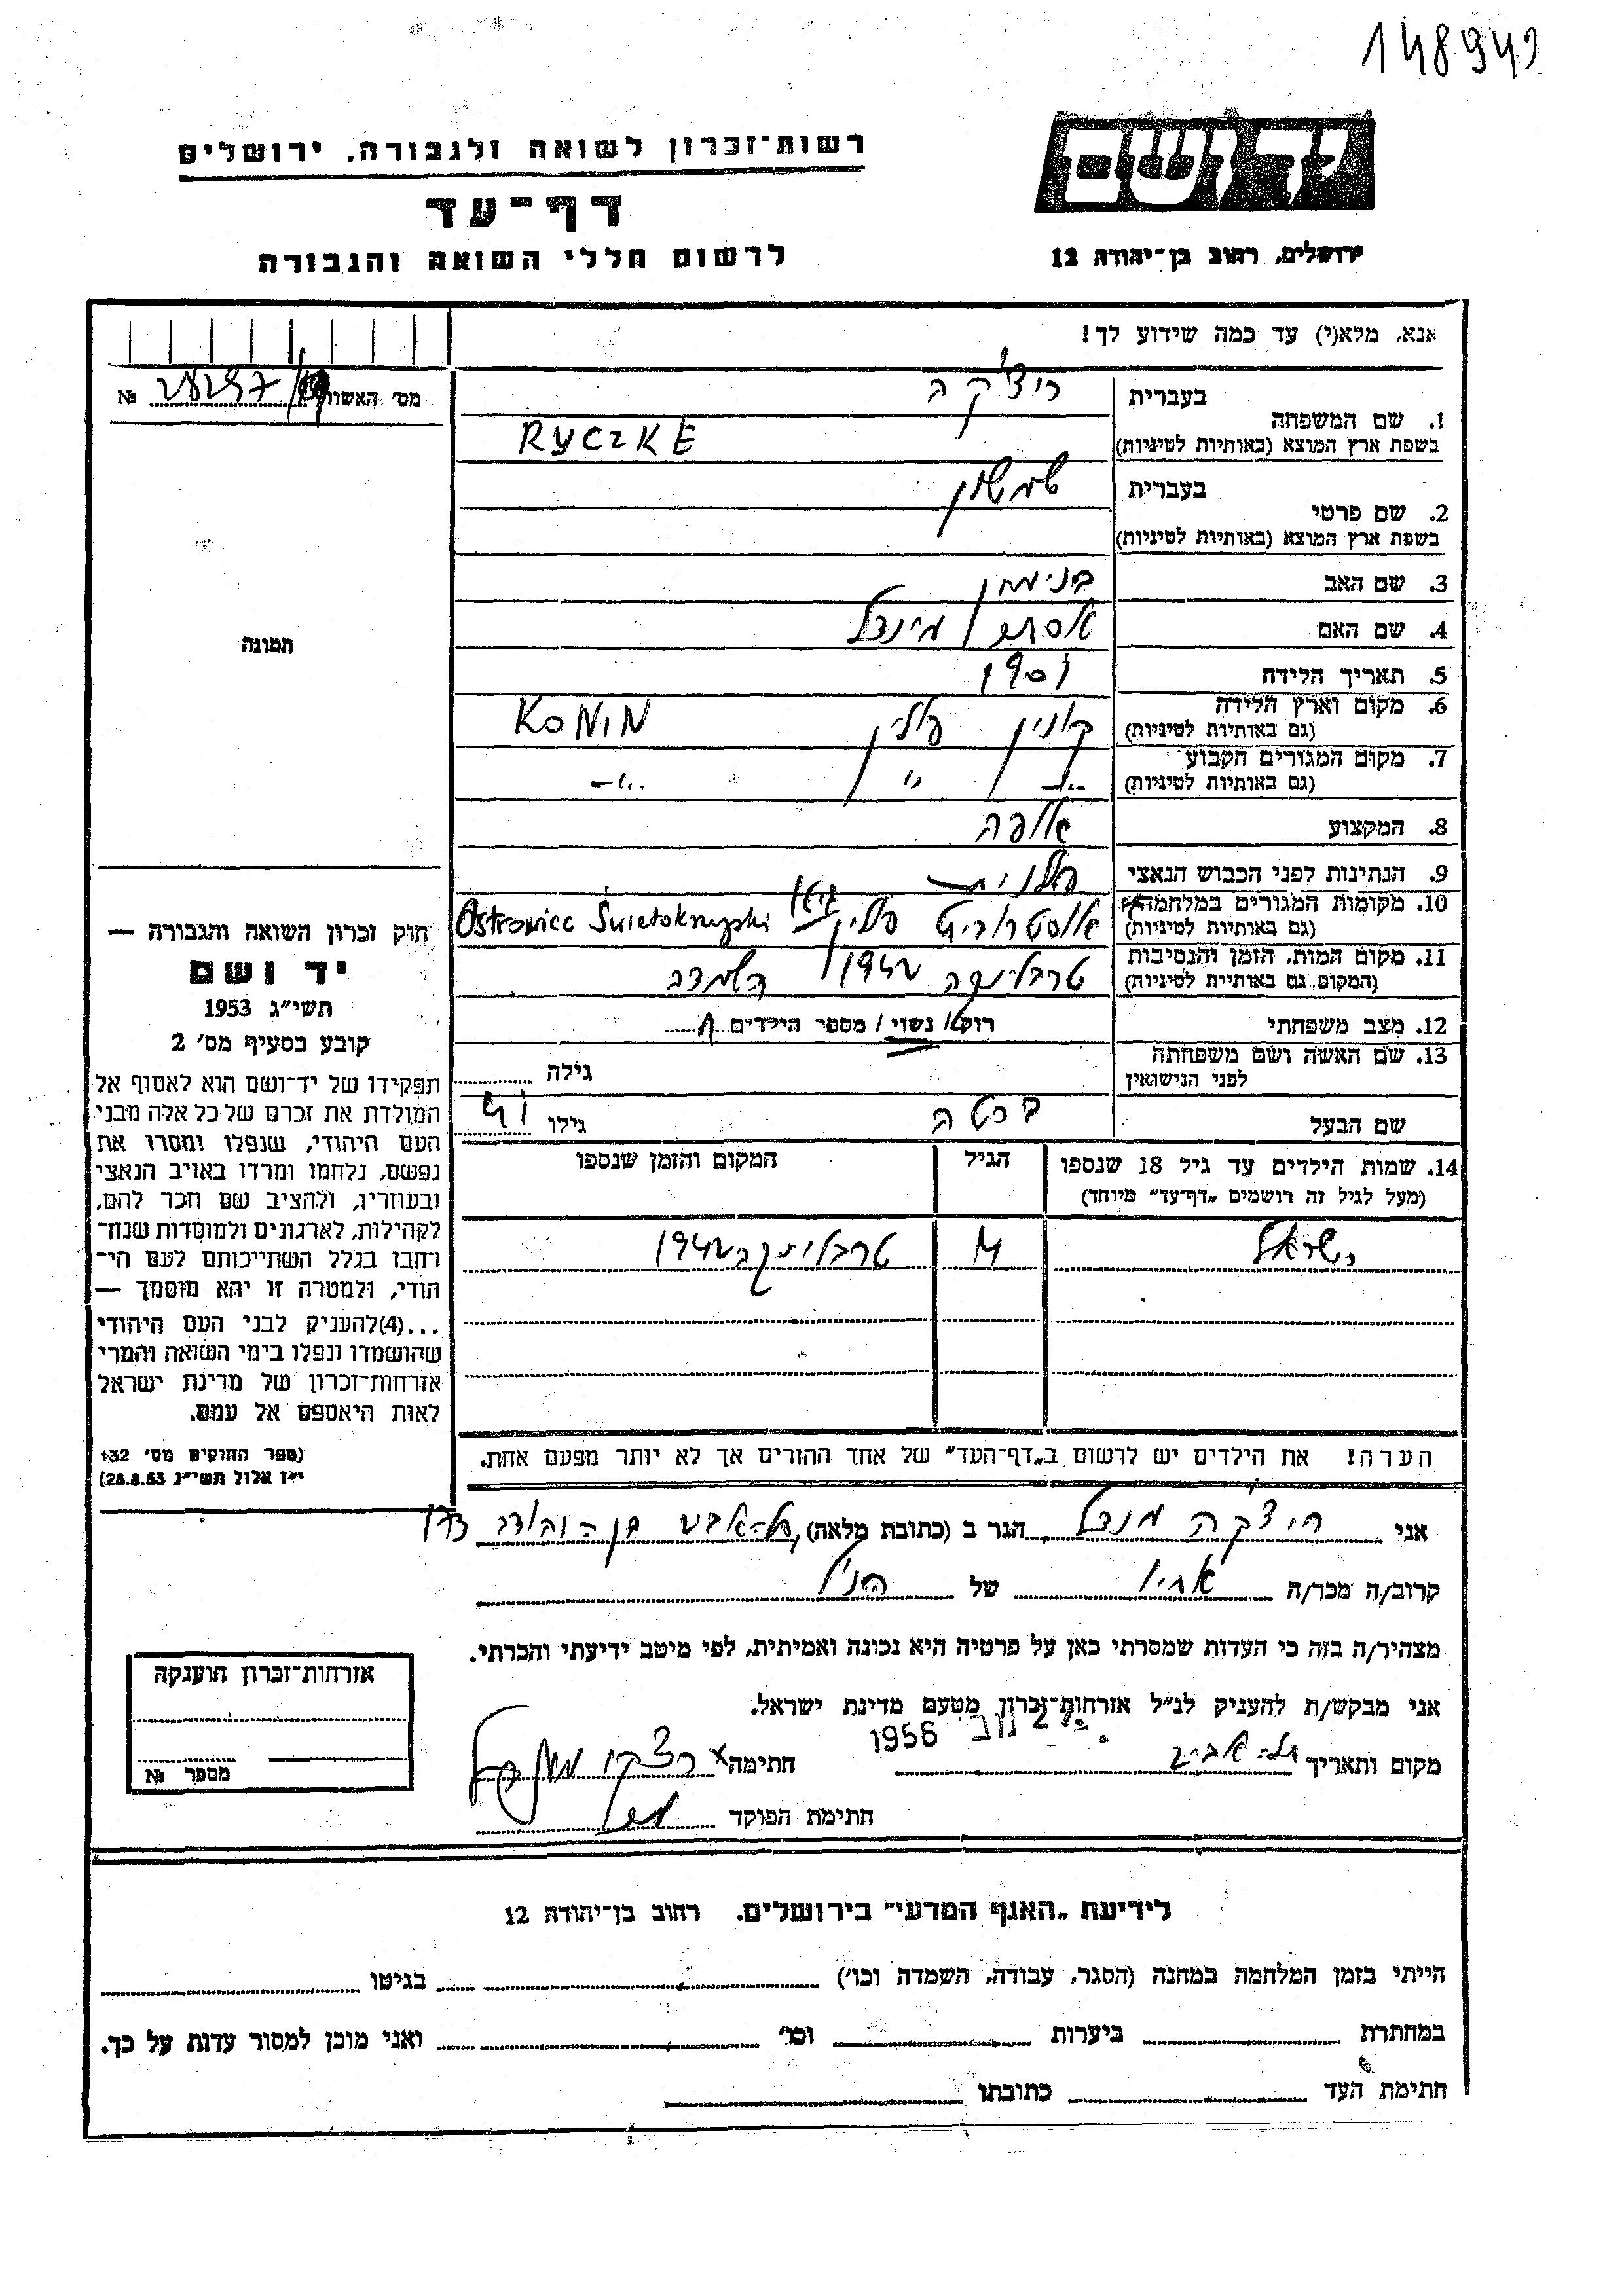 148942
רשות־זכרון לשואה ולגבורה, ירושלים
יד ושם
דף־עד
לרשום חללי השואה והגבורה
ירושלים, רחוב בן־יהודה 12
אנא, מלא(י) עד כמה שידוע לך!
מס׳ האשור № 
1. שם המשפחה
בעברית ריצ׳קה
בשפת ארץ המוצא (באותיות לטיניות) RYCZKE
2. שם פרטי
בעברית שמשון
בשפת ארץ המוצא (באותיות לטיניות)
3. שם האב בנימין
4. שם האם אסתר מינדל
5. תאריך הלידה 1901
6. מקום וארץ הלידה (גם באותיות לטיניות) קונין פולין KONIN
7. מקום המגורים הקבוע (גם באותיות לטיניות) -"- " -"-
8. המקצוע אופה
9. הנתינות לפני הכבוש הנאצי פולנית
10. מקומות המגורים במלחמה (גם באותיות לטיניות) אוסטרוביץ פולין גיטו Ostrowiec Świetokrzyski
11. מקום המות, הזמן והנסיבות (המקום גם באותיית לטיניות) טרבלינקה 1942 השמדה
12. מצב משפחתי רווק / נשוי / מספר הילדים 1
13. שם האשה ושם משפחתה לפני הנישואין גילה
שם הבעל ברטה גילו 41
14. שמות הילדים עד גיל 18 שנספו הגיל המקום והזמן שנספו
(מעל לגיל זה רושמים „דף־עד״ מיוחד)
ישראל 14 טרבלינקה 1942
הערה! את הילדים יש לרשום ב„דף־העד״ של אחד ההורים אך לא יותר מפעם אחת.
תמונה
חוק זכרון השואה והגבורה —
יד ושם
תשי״ג 1953
קובע בסעיף מס׳ 2
תפקידו של יד־ושם הוא לאסוף אל
המולדת את זכרם של כל אלה מבני
העם היהודי, שנפלו ומסרו את
נפשם, נלחמו ומרדו באויב הנאצי
ובעוזריו, ולהציב שם וזכר להם,
לקהילות, לארגונים ולמוסדות שנח־
רחבו בגלל השתייכותם לעם הי־
הודי, ולמטרה זו יהא מוסמך —
...(4)להעניק לבני העם היהודי
שהושמדו ונפלו בימי השואה והמרי
אזרחות־זכרון של מדינת ישראל
לאות היאספם אל עמם.
(ספר החוקים מס׳ 132
י״ז אלול תשי״ג 28.8.53)
אני ריצ׳קה מנדל הגר ב (כתובת מלאה) תל-אביב
קרוב/ה מכר/ה אחיו של הנ״ל
מצהיר/ה בזה כי העדות שמסרתי כאן על פרטיה היא נכונה ואמיתית, לפי מיטב ידיעתי והכרתי.
אני מבקש/ת להעניק לנ״ל אזרחות־זכרון מטעם מדינת ישראל.
מקום ותאריך תל-אביב 27 נוב׳ 1956 חתימה
חתימת הפוקד
אזרחות־זכרון הוענקה
מספר №
לידיעת „האגף המדעי״ בירושלים, רחוב בן־יהודה 12
הייתי בזמן המלחמה במחנה (הסגר, עבודה, השמדה וכו׳) בגיטו
במחתרת ביערות וכו׳ ואני מוכן למסור עדות על כך.
חתימת העד כתובתו